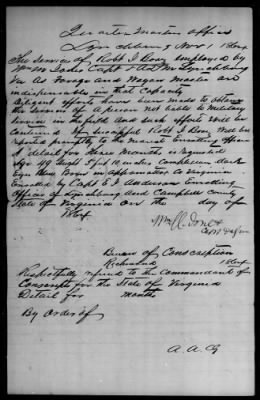 Quarter Masters office
Lynchburg Nov 1 1864
The services of Robt I Bony employed by
Wm M Jones Capt & AQM Lynchburg
Va As Forage and Wagon Master are
indispensible in that Capacity
Diligent efforts have been made to obtain
the services of a person not liable to Military
Service in the field and such efforts will be
Continued When successful Robt I Bony will be
reported promptly to the nearest Enrolling officer
A detail for three Months is requested
Age 49 Hight 5 feet 10 inches Complexion dark
Eyes Born in Appomattox Co Virginia
Enrolled by Capt E J Anderson Enrolling
Officer of Lynchburg and Campbell County
State of Virginia on the day of
1864
Wm M Jones
Capt AQM
Bureau of Conscription
Richmond 1864
Respectfully refered to the Commandant of
Conscripts for the State of Virginia
Detail for months
By Order of
A. A. G